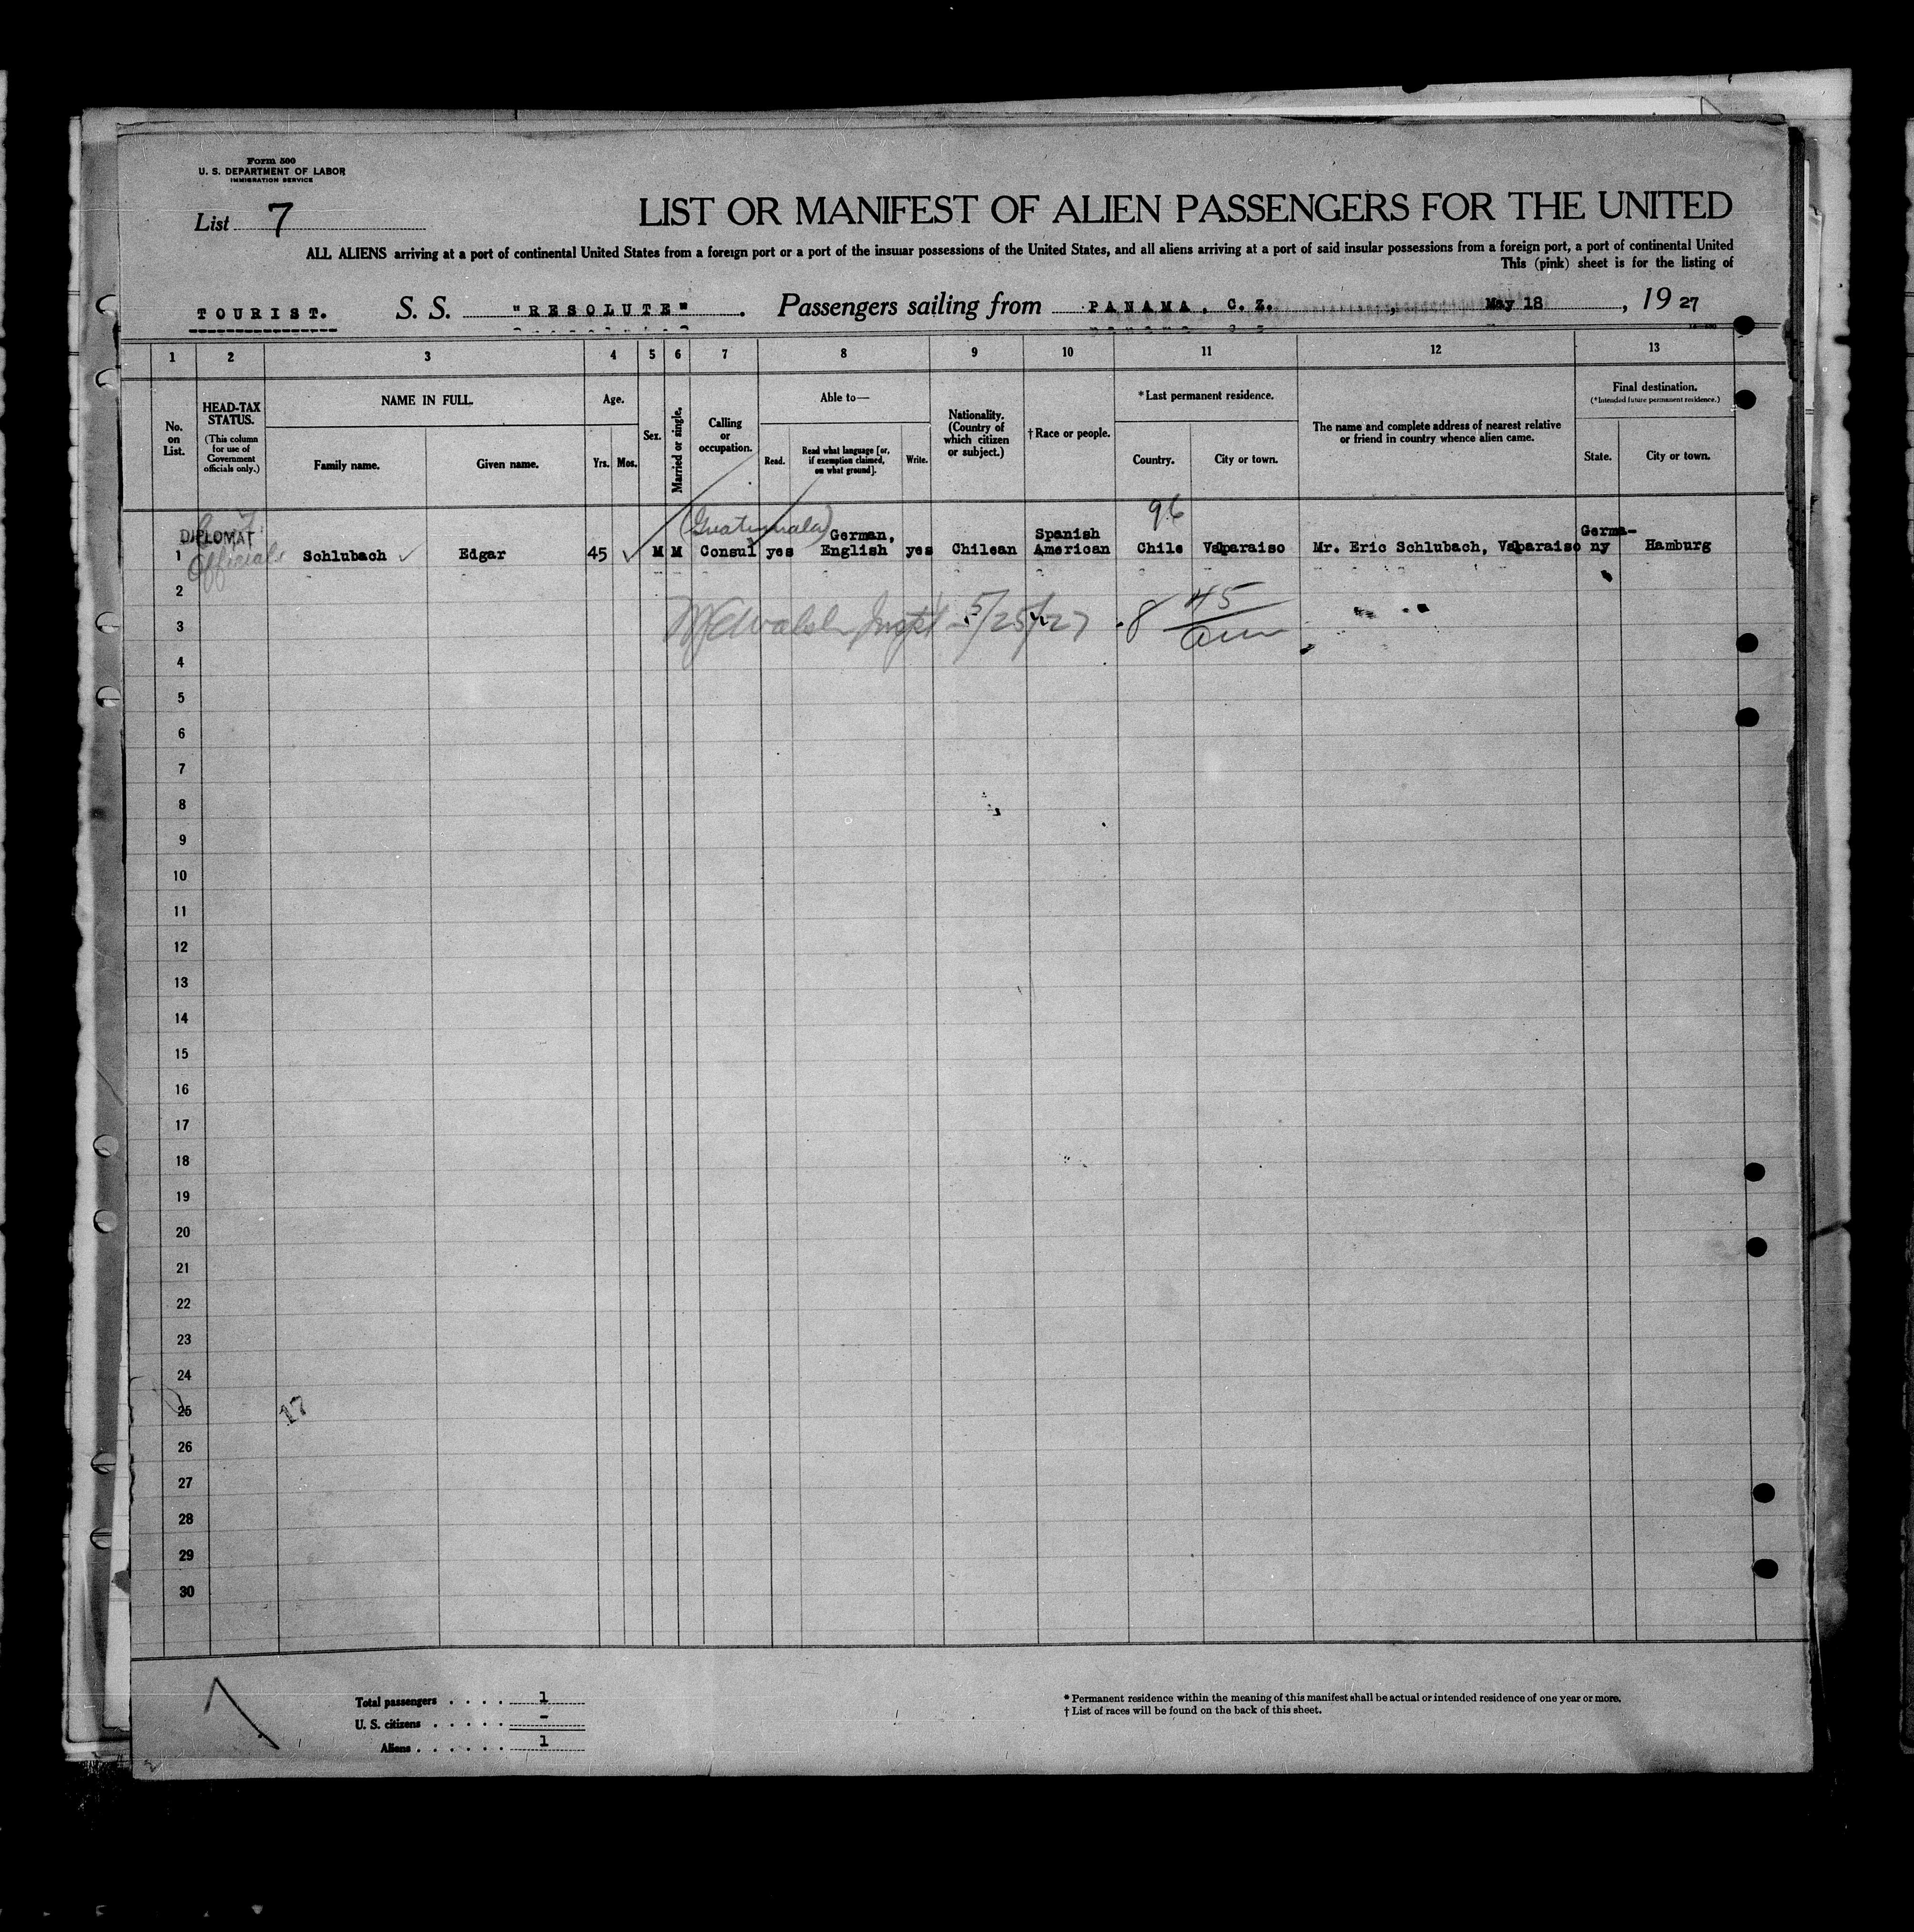 Form 500
U. S. DEPARTMENT OF LABOR
IMMIGRATION SERVICE
List 7
LIST OR MANIFEST OF ALIEN PASSENGERS FOR THE UNITED
ALL ALIENS arriving at a port of continental United States from a foreign port or a port of the insular possessions of the United States, and all aliens arriving at a port of said insular possessions from a foreign port, a port of continental United
This (pink) sheet is for the listing of
TOURIST. S. S. "RESOLUTE" . Passengers sailing from PANAMA, C. Z. , May 18 , 19 27
1 2 3 4 5 6 7 8 9 10 11 12 13
No. on List.
HEAD-TAX STATUS.
(This column for use of Government officials only.)
NAME IN FULL.
Family name. Given name.
Age.
Yrs. Mos.
Sex.
Married or single.
Calling or occupation.
Able to—
Read. Read what language [or, if exemption claimed, on what ground]. Write.
Nationality. (Country of which citizen or subject.)
†Race or people.
*Last permanent residence.
Country. City or town.
The name and complete address of nearest relative or friend in country whence alien came.
Final destination.
(*Intended future permanent residence.)
State. City or town.
96
DIPLOMAT (Guatemala) German, Spanish Germa-
1 Officials Schlubach Edgar 45 M M Consul yes English yes Chilean American Chile Valparaiso Mr. Eric Schlubach, Valparaiso ny Hamburg
2
3 5/25/27 8 45 am
4
5
6
7
8
9
10
11
12
13
14
15
16
17
18
19
20
21
22
23
24
25 27
26
27
28
29
30
Total passengers . . . . 1
U. S. citizens . . . . . -
Aliens . . . . . . 1
* Permanent residence within the meaning of this manifest shall be actual or intended residence of one year or more.
† List of races will be found on the back of this sheet.